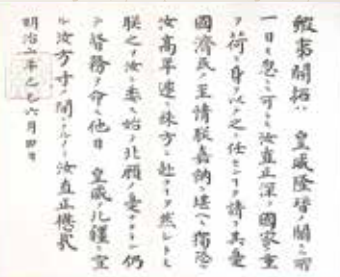 蝦夷開拓ハ 皇威隆替ノ關スル所
一日モ忽ニス可ラス汝直正深ク國家ノ重
ヲ荷ヒ身ヲ以テ之ニ任センコトヲ請フ其憂
國濟民ノ至情朕嘉納ニ堪ヘス獨恐
汝高年遠ク殊方ニ赴クコトヲ然レトモ
朕之ヲ汝ニ委シ始テ北顧ノ憂ナカラン仍
テ督務ヲ命ス他日 皇威ヲ北疆ニ宣
ル汝方寸ノ間ニアルノミ汝直正懋哉
明治二年己巳六月四日